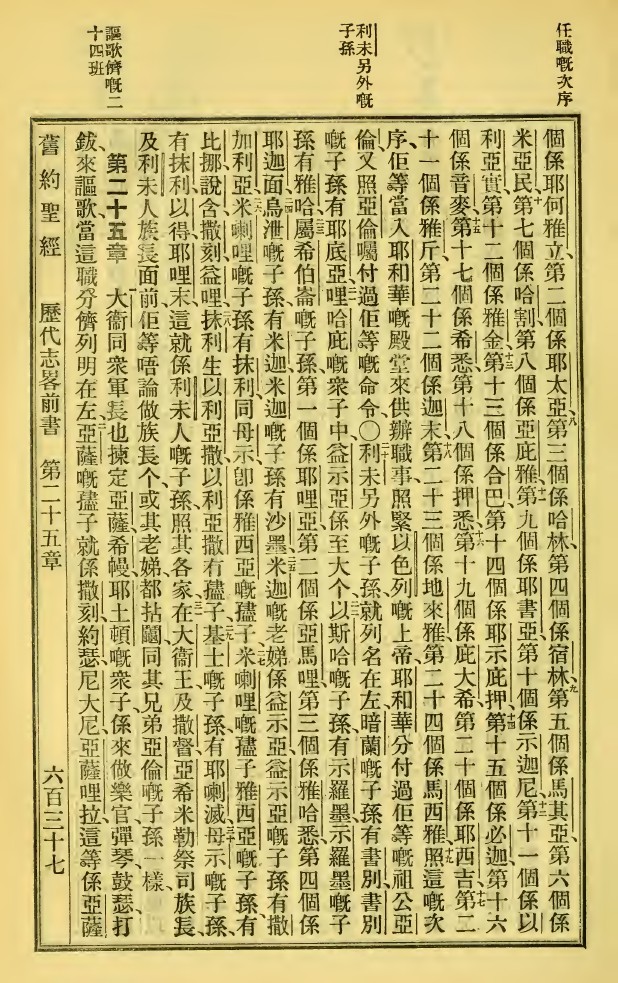 任職嘅次序
利未另外嘅
子孫
謳歌儕嘅二
十四班
個係耶何雅立、第二個係耶太亞、八第三個係哈林、第四個係宿林、九第五個係馬其亞、第六個係
米亞民、十第七個係哈割、第八個係亞庇雅、十一第九個係耶書亞、第十個係示迦尼、十二第十一個係以
利亞實、第十二個係雅金、十三第十三個係合巴、第十四個係耶示庇押、十四第十五個係必迦、第十六
個係音麥、十五第十七個係希悉、第十八個係押悉、十六第十九個係庇大希、第二十個係耶西吉、十七第二
十一個係雅斤、第二十二個係迦末、十八第二十三個係地來雅、第二十四個係馬西雅、十九照這嘅次
序、佢等當入耶和華嘅殿堂來供辦職事、照緊以色列嘅上帝耶和華分付過佢等嘅祖公亞
倫、又照亞倫囑付過佢等嘅命令、〇二十利未另外嘅子孫、就列名在左、暗蘭嘅子孫有書別、書別
嘅子孫有耶底亞、二一哩哈庇嘅衆子中、益示亞係至大个、二二以斯哈嘅子孫有示羅墨、示羅墨嘅子
孫有雅哈、二三屬希伯崙嘅子孫、第一個係耶哩亞、第二個係亞馬哩、第三個係雅哈悉、第四個係
耶迦面、二四烏泄嘅子孫有米迦、米迦嘅子孫有沙墨、二五米迦嘅老娣係益示亞、益示亞嘅子孫有撒
加利亞、二六米喇哩嘅子孫有抹利、同母示、卽係雅西亞嘅孻子、二七米喇哩嘅孻子雅西亞嘅子孫、有
比挪、說含、撒刻、益哩、二八抹利生以利亞撒、以利亞撒有孻子、二九基士嘅子孫、有耶喇滅、三十母示嘅子孫、
有抹利、以得、耶哩末、這就係利未人嘅子孫、照其各家、三一在大衞王、及撒督、亞希米勒、祭司族長、
及利未人族長面前、佢等唔論做族長个、或其老娣、都拈鬮同其兄弟亞倫嘅子孫一樣、
第二十五章　一大衞同衆軍長也揀定亞薩、希幔、耶土頓嘅衆子、係來做樂官、彈琴、鼓瑟、打
鈸、來謳歌、當這職分儕、列明在左、二亞薩嘅孻子、就係撒刻、約瑟、尼大尼、亞薩哩拉、這等係亞薩
舊約聖經　歷代志畧前書　第二十五章　六百三十七